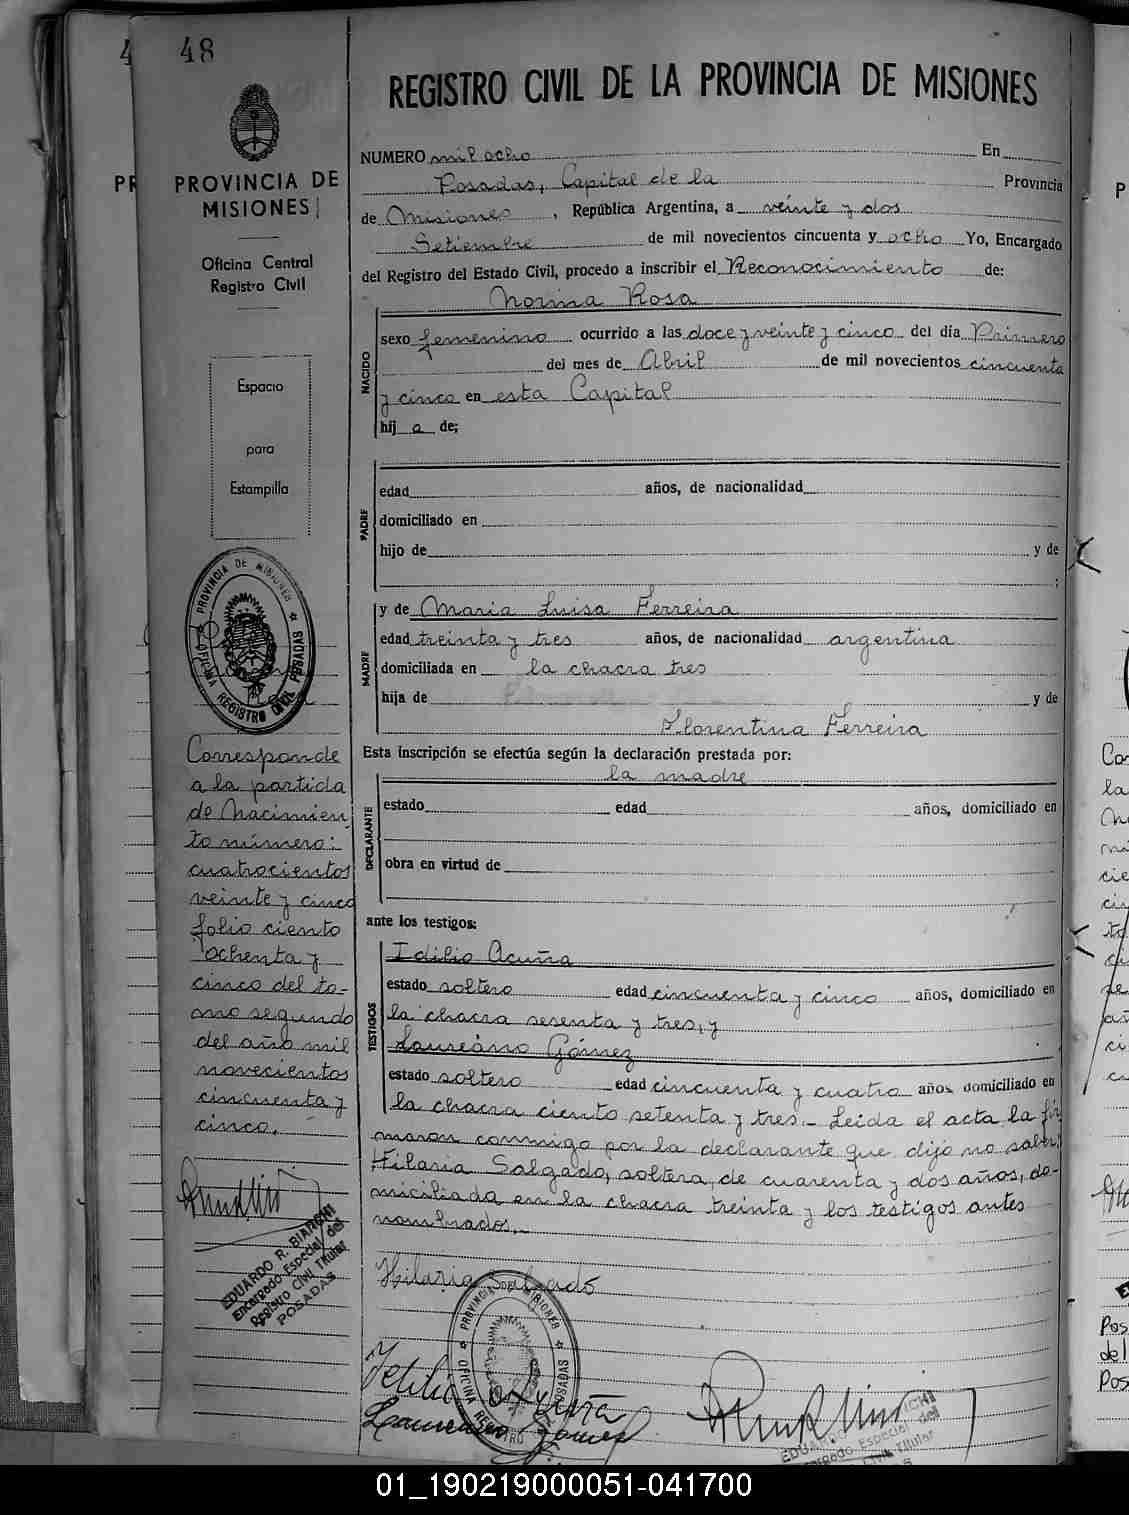 48
REGISTRO CIVIL DE LA PROVINCIA DE MISIONES
PROVINCIA DE
MISIONES
Oficina Central
Registro Civil
Espacio
para
Estampilla
NUMERO mil ocho En
Posadas, Capital de la Provincia
de Misiones, República Argentina, a veinte y dos
Setiembre de mil novecientos cincuenta y ocho Yo, Encargado
del Registro del Estado Civil, procedo a inscribir el Reconocimiento de:
Norma Rosa
NACIDO
sexo femenino ocurrido a las doce y veinte y cinco del día Primero
del mes de Abril de mil novecientos cincuenta
y cinco en esta Capital
hij a de;
PADRE
edad años, de nacionalidad
domiciliado en
hijo de y de
;
MADRE
y de Maria Luisa Ferreira
edad treinta y tres años, de nacionalidad argentina
domiciliada en la chacra tres
hija de y de
Florentina Ferreira
Esta inscripción se efectúa según la declaración prestada por:
la madre
DECLARANTE
estado edad años, domiciliado en
obra en virtud de
ante los testigos:
TESTIGOS
Idilio Acuña
estado soltero edad cincuenta y cinco años, domiciliado en
la chacra sesenta y tres, y
Laureáno Gómez
estado soltero edad cincuenta y cuatro años domiciliado en
la chacra ciento setenta y tres.- Leida el acta la fir
maron conmigo por la declarante que dijo no saber:
Hilaria Salgado, soltera, de cuarenta y dos años, do-
miciliada en la chacra treinta y los testigos antes
nombrados.-
Hilaria Salgado
PROVINCIA DE MISIONES
OFICINA REGISTRO CIVIL POSADAS
Corresponde
a la partida
de Nacimien
to número:
cuatrocientos
veinte y cinco
folio ciento
ochenta y
cinco del to-
mo segundo
del año mil
novecientos
cincuenta y
cinco.
EDUARDO R. BIANCHI
Encargado Especial del
Registro Civil Titular
POSADAS
01_190219000051-041700